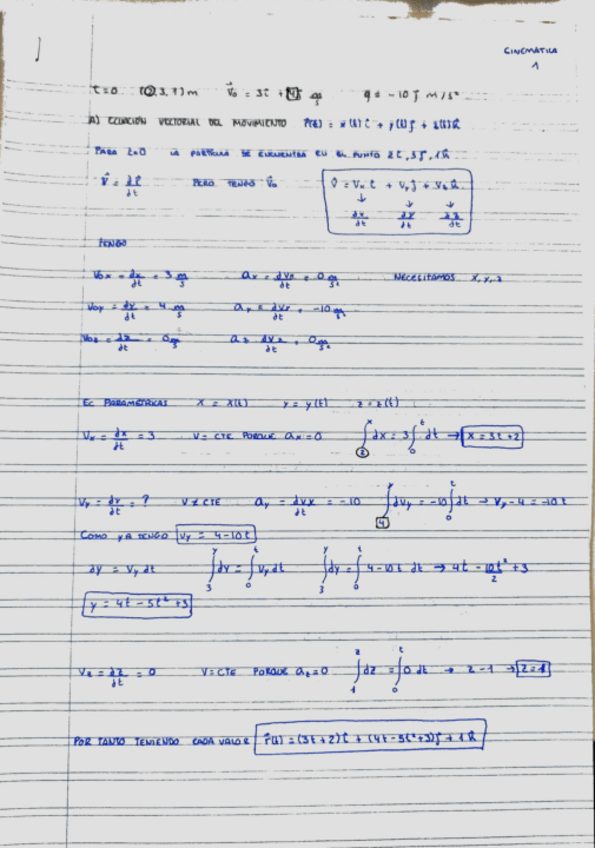 CINEMÁTICA
1
t=0 (2,3,1) m v⃗₀ = 3i + 4j m/s g = -10 j m/s²
A) ECUACIÓN VECTORIAL DEL MOVIMIENTO r⃗(t) = x(t) i + y(t) j + z(t) k
PARA t=0 LA PARTÍCULA SE ENCUENTRA EN EL PUNTO 2i, 3j, 1k
v⃗ = dr⃗/dt PERO TENGO v⃗₀ v⃗ = Vx i + Vy j + Vz k
↓ ↓ ↓
dx/dt dy/dt dz/dt
TENGO
V₀x = dx/dt = 3 m/s ax = dVx/dt = 0 m/s² NECESITAMOS x, y, z
V₀y = dy/dt = 4 m/s ay = dVy/dt = -10 m/s²
V₀z = dz/dt = 0 m/s az = dVz/dt = 0 m/s²
EC PARAMÉTRICAS x = x(t) y = y(t) z = z(t)
Vx = dx/dt = 3 V = CTE PORQUE ax = 0 ∫₂ˣ dx = 3 ∫₀ᵗ dt → x = 3t + 2
Vy = dy/dt = ? V ≠ CTE ay = dvx/dt = -10 ∫₄ʸ dVy = -10 ∫₀ᵗ dt → Vy - 4 = -10t
COMO YA TENGO Vy = 4 - 10t
dy = Vy dt ∫₃ʸ dy = ∫₀ᵗ Vy dt ∫₃ʸ dy = ∫₀ᵗ 4 - 10t dt → 4t - 10t²/2 + 3
y = 4t - 5t² + 3
Vz = dz/dt = 0 V = CTE PORQUE az = 0 ∫₁ᶻ dz = ∫₀ᵗ 0 dt → z - 1 → z = 1
POR TANTO TENIENDO CADA VALOR r⃗(t) = (3t+2) i + (4t - 5t² + 3) j + 1k